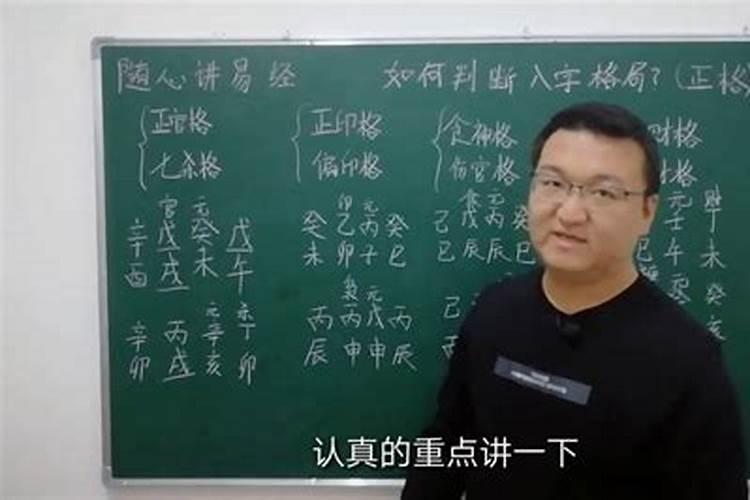 随心讲易经 如何判断八字格局?(正格)
正官格 正印格 食神格 财格
七杀格 偏印格 伤官格 财格
官 元 印 元 食 元 元 财
辛 戊 癸 戊 癸 乙 丙 癸 己 戊 丙 癸 壬 丁
酉 戌 未 午 未 卯 子 巳 巳 辰 辰 巳 巳 午 未
元 杀 元
辛 丙 辛 丁 丙 丙 戊 丙 己 癸
卯 戌 亥 卯 辰 申 申 辰 亥
认真的重点讲一下